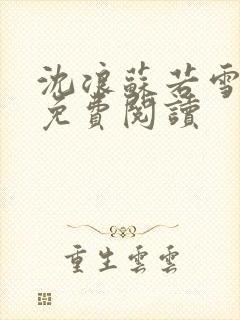 沈浪蘇若雪
免費閱讀
重生雲雲